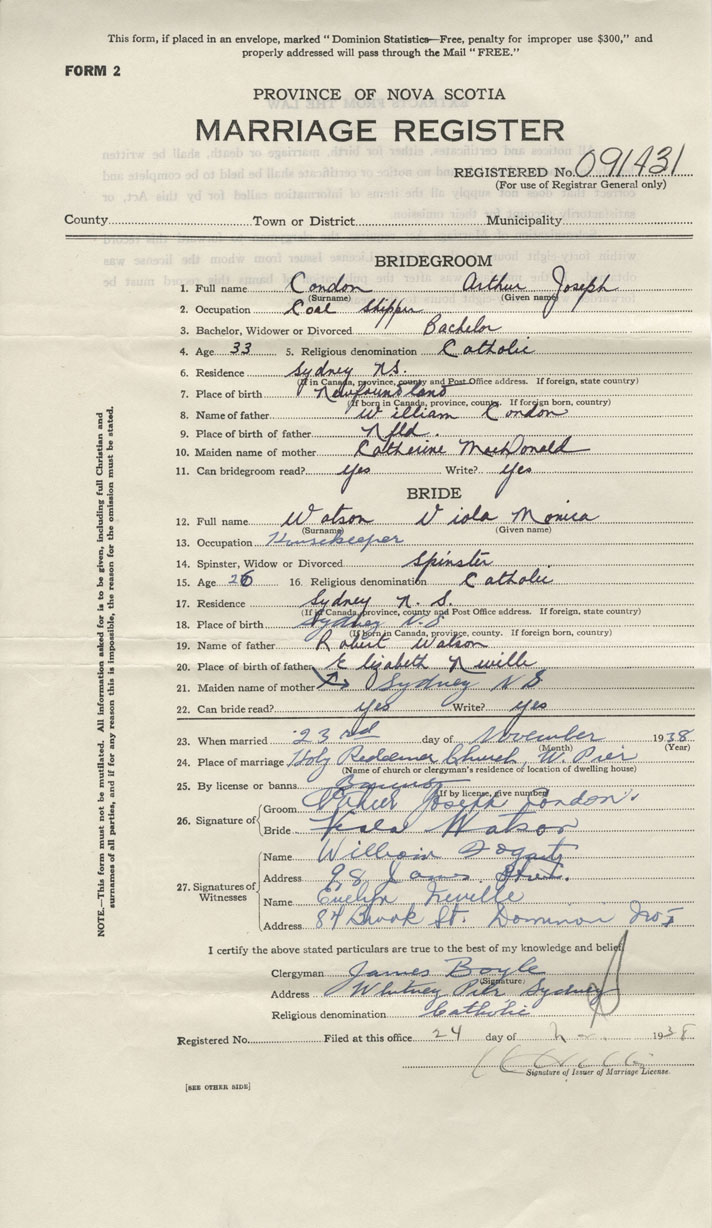 This form, if placed in an envelope, marked "Dominion Statistics—Free, penalty for improper use $300," and
properly addressed will pass through the Mail "FREE."
FORM 2
PROVINCE OF NOVA SCOTIA
MARRIAGE REGISTER
REGISTERED No. 091431
(For use of Registrar General only)
County Town or District Municipality
BRIDEGROOM
1. Full name Condon Arthur Joseph
(Surname) (Given name)
2. Occupation Coal Shipper
3. Bachelor, Widower or Divorced Bachelor
4. Age 33 5. Religious denomination Catholic
6. Residence Sydney NS.
(If in Canada, province, county and Post Office address. If foreign, state country)
7. Place of birth Newfoundland
(If born in Canada, province, county. If foreign born, country)
8. Name of father William Condon
9. Place of birth of father Nfld.
10. Maiden name of mother Catherine MacDonald
11. Can bridegroom read? yes Write? yes
BRIDE
12. Full name Watson Viola Monica
(Surname) (Given name)
13. Occupation Housekeeper
14. Spinster, Widow or Divorced Spinster
15. Age 26 16. Religious denomination Catholic
17. Residence Sydney N. S.
(If in Canada, province, county and Post Office address. If foreign, state country)
18. Place of birth Sydney N.S
(If born in Canada, province, county. If foreign born, country)
19. Name of father Robert Watson
20. Place of birth of father Elizabeth Neville
21. Maiden name of mother Sydney N S
22. Can bride read? yes Write? yes
23. When married 23rd day of November 1938
(Month) (Year)
24. Place of marriage Holy Redeemer Church, W. Pier
(Name of church or clergyman's residence of location of dwelling house)
25. By license or banns Banns
(If by license, give number)
26. Signature of Groom Arthur Joseph Condon
Bride Viola Watson
27. Signatures of Witnesses Name William Fogarty
Address 98 James Street.
Name Evelyn Neville
Address 84 Brook St. Dominion No 1
I certify the above stated particulars are true to the best of my knowledge and belief.
Clergyman James Boyle
(Signature)
Address Whitney Pier Sydney
Religious denomination Catholic
Registered No. Filed at this office 24 day of 1938
Signature of Issuer of Marriage License.
[SEE OTHER SIDE]
NOTE.—This form must not be mutilated. All information asked for is to be given, including full Christian and
surnames of all parties, and if for any reason this is impossible, the reason for the omission must be stated.